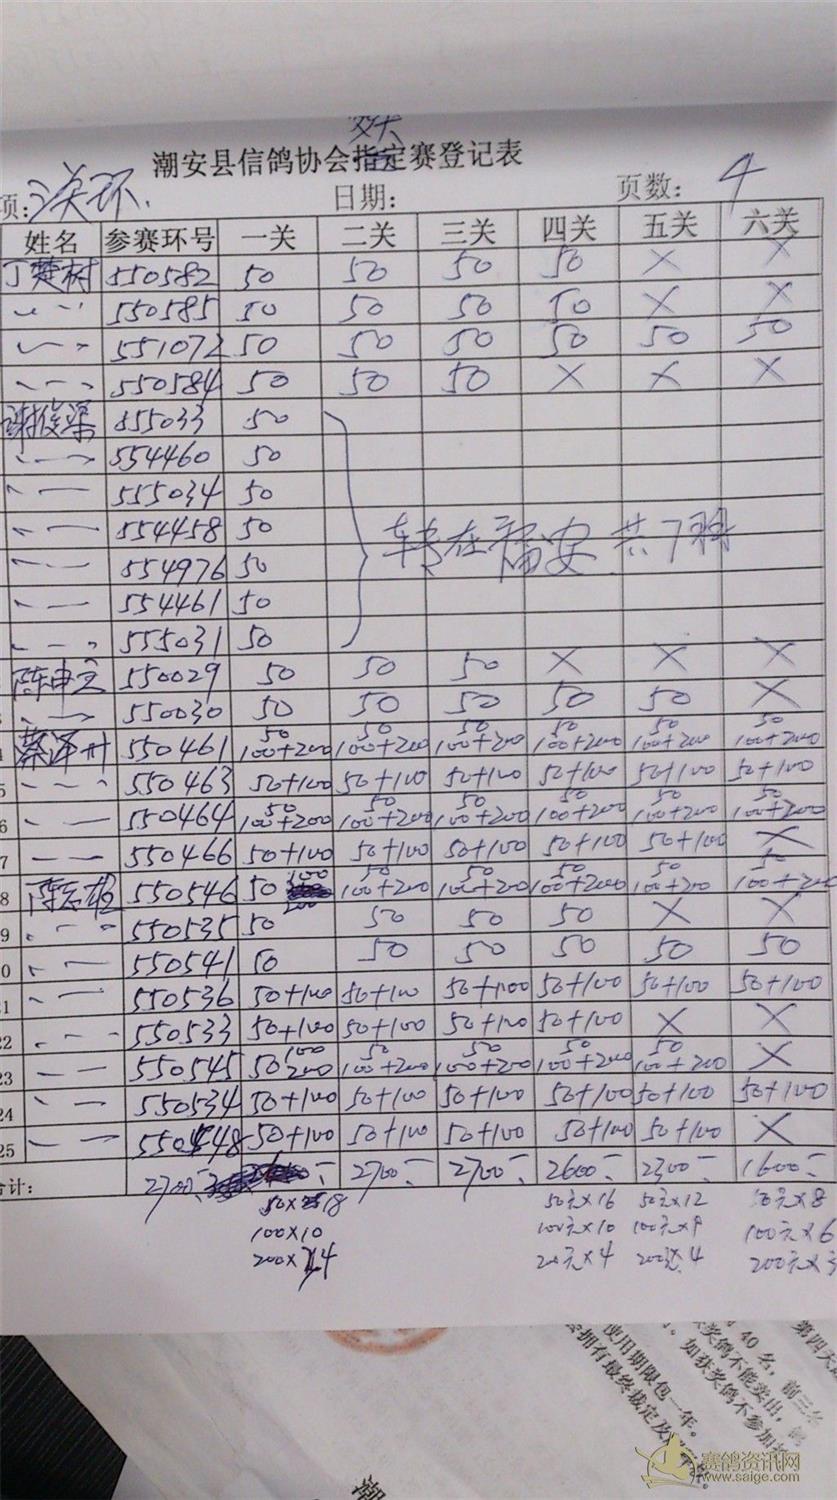 关
潮安县信鸽协会指定赛登记表
项: 关环. 日期: 页数: 4
姓名 参赛环号 一关 二关 三关 四关 五关 六关
丁楚树 550582 50 50 50 50 × ×
〃 550585 50 50 50 50 × ×
〃 551072 50 50 50 50 50 50
〃 550584 50 50 50 × × ×
谢俊深 555033 50
〃 554460 50
〃 555034 50
〃 554458 50
转在福安 共7羽
〃 554976 50
〃 554461 50
〃 555031 50
陈申 550029 50 50 50 × × ×
〃 550030 50 50 50 50 50 ×
蔡泽 550461 50 100+200 50 100+200 50 100+200 50 100+200 50 100+200 50 100+200
5 〃 550463 50+100 50+100 50+100 50+100 50+100 50+100
6 〃 550464 50 100+200 50 100+200 50 100+200 50 100+200 50 100+200 50 100+200
7 〃 550466 50+100 50+100 50+100 50+100 50+100 ×
8 陈志雄 550546 50 100 200 50 100+200 50 100+200 50 100+200 50 100+200 50 100+200
9 〃 550535 50 50 50 50 × ×
0 〃 550541 50 50 50 50 50 50
21 〃 550536 50+100 50+100 50+100 50+100 50+100 50+100
22 〃 550533 50+100 50+100 50+100 50+100 × ×
23 〃 550545 50 100 200 50 100+200 50 100+200 50 100+200 50 100+200 ×
24 〃 550534 50+100 50+100 50+100 50+100 50+100 50+100
25 〃 550448 50+100 50+100 50+100 50+100 50+100 ×
合计: 2700 2700 2700 2600 2300 1600
50×18 50元×16 50元×12 50元×8
100×10 100元×10 100元×9 100元×6
200×4 200元×4 200元×4 200元×3
第四天
40名,前三名
奖鸽不能卖出,
如获奖鸽不参加
使用期限包一年。
会拥有最终裁定及
潮
赛鸽资讯网
www.saige.com